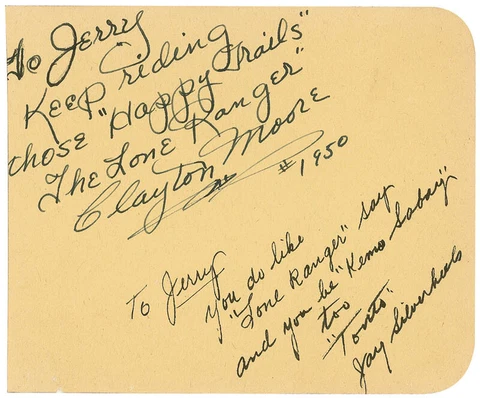 To Jerry
Keep riding
those "Happy Trails"
"The Lone Ranger"
Clayton Moore
#1950
To Jerry
You do like
"Lone Ranger" say
and you be "Kemo Sabay"
too
"Tonto"
Jay Silverheels